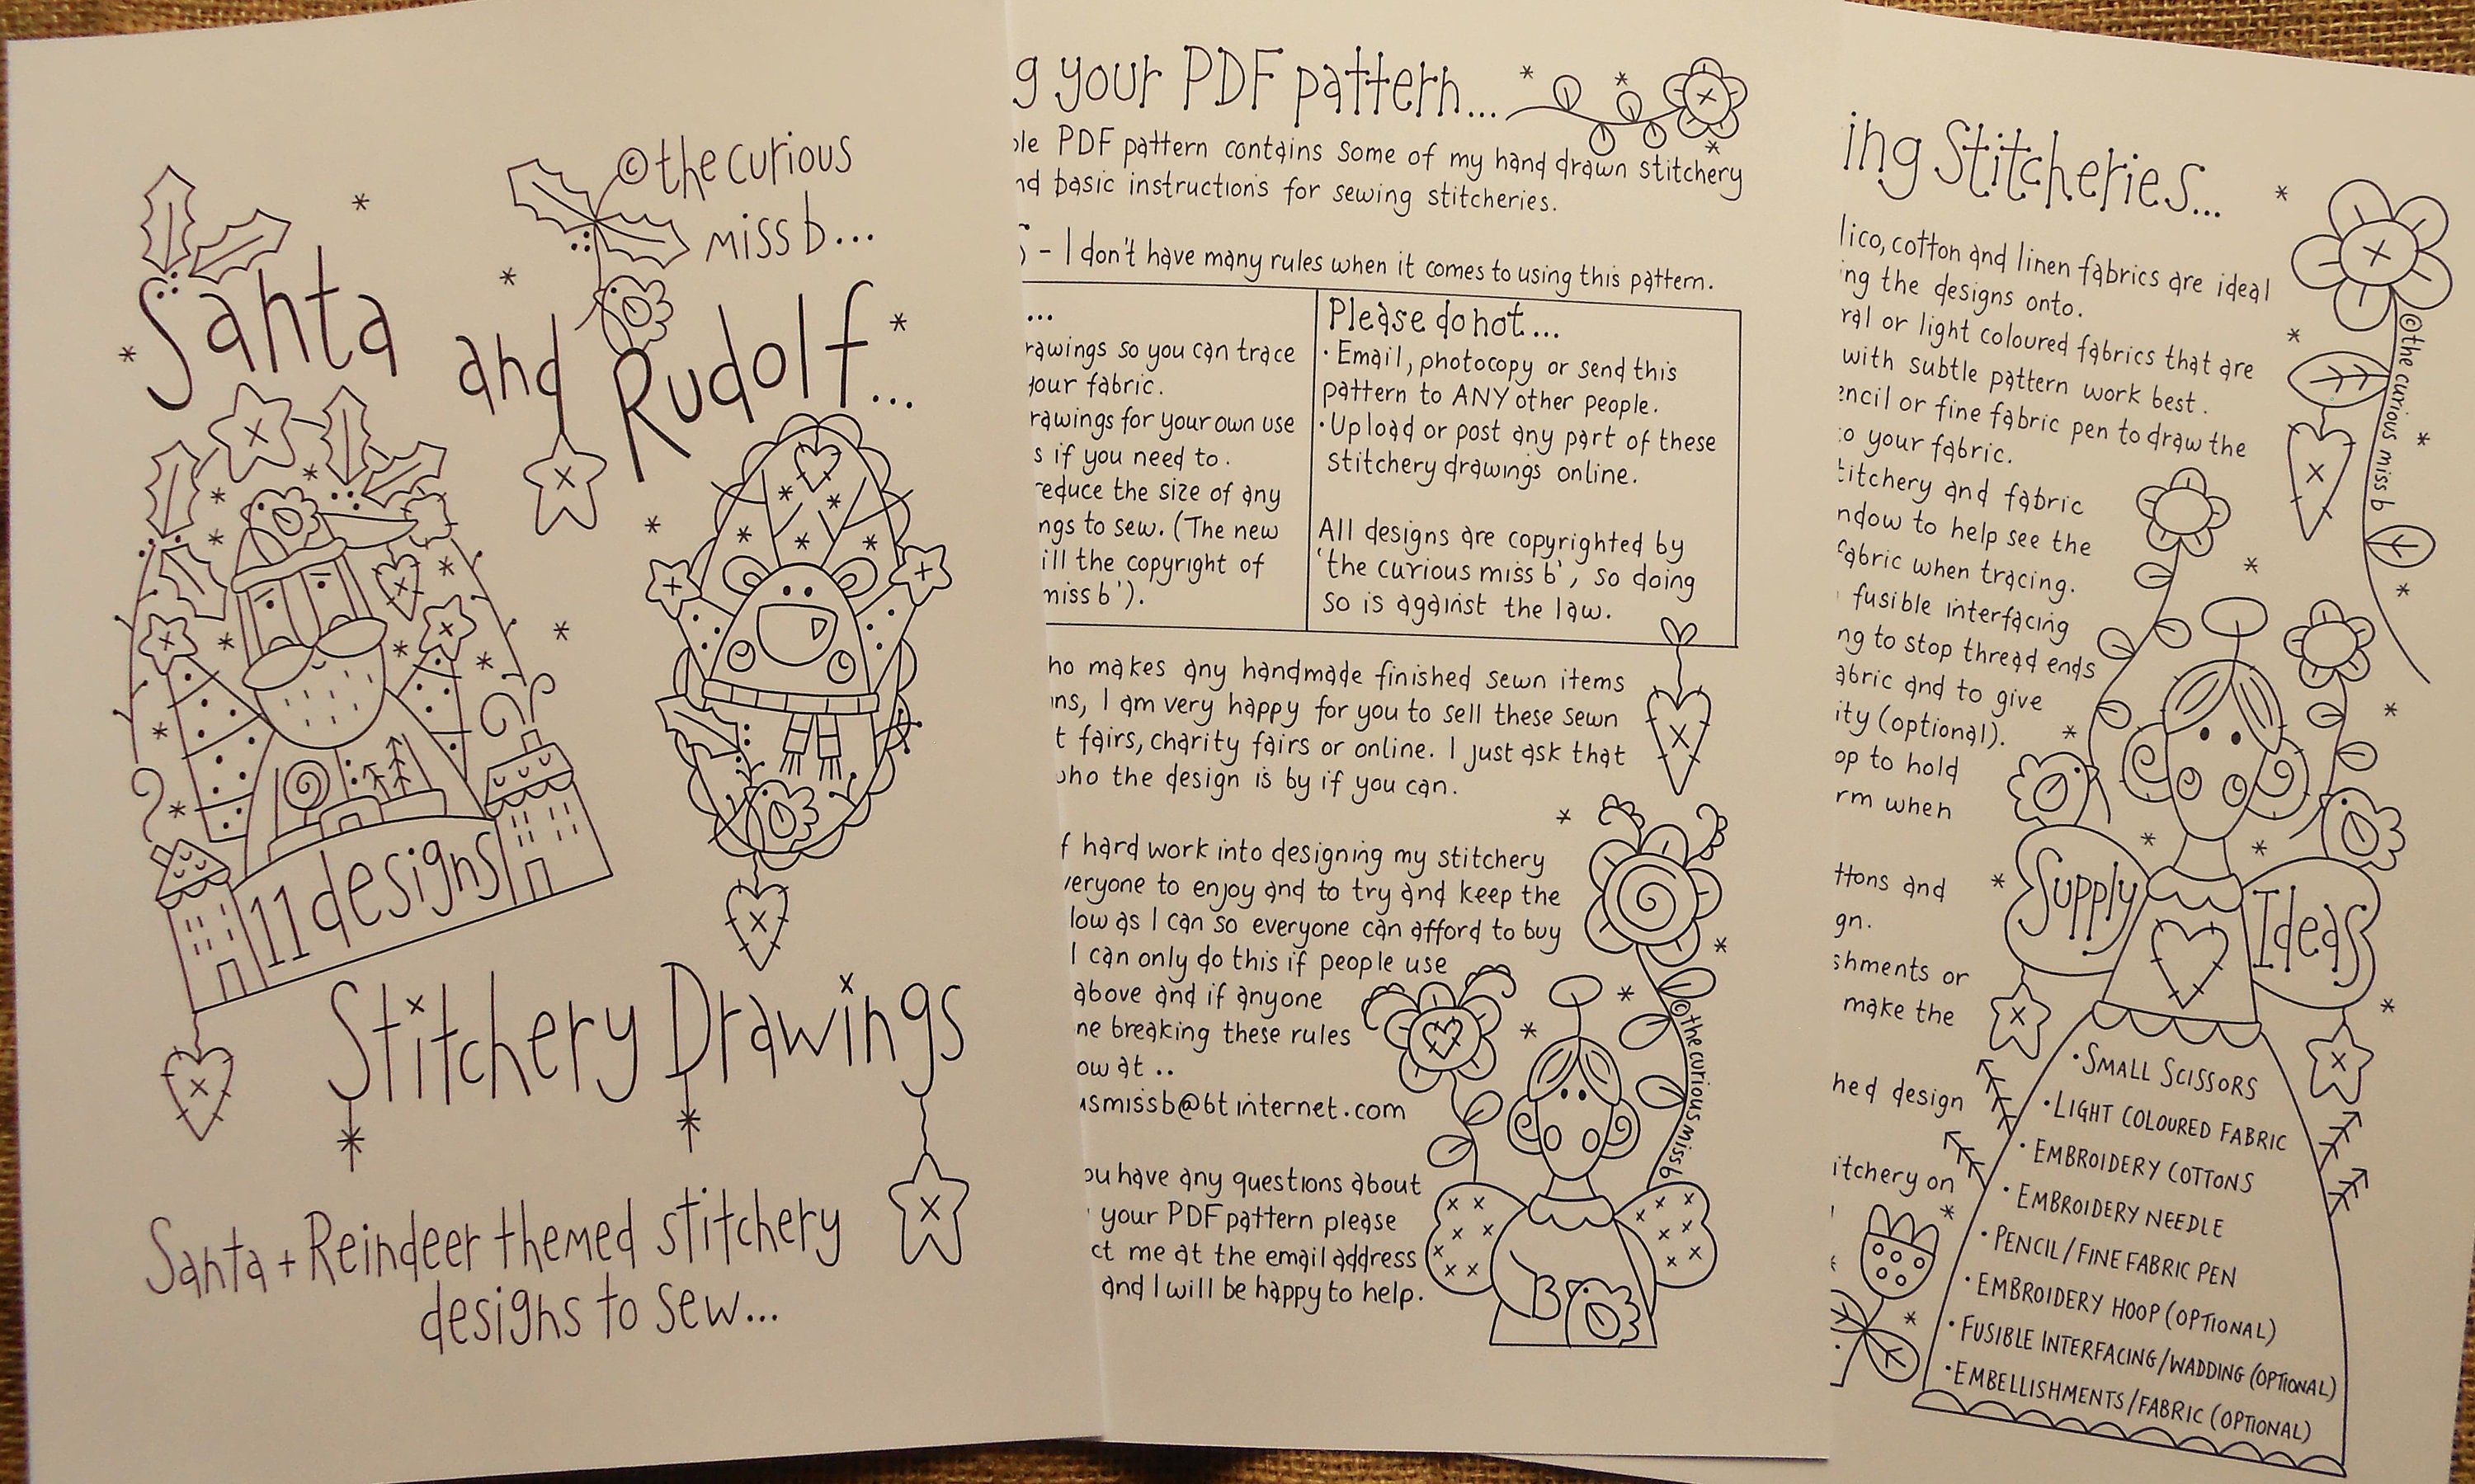 ©the curious
miss b...
Santa
and Rudolf...
11 designs
Stitchery Drawings
Santa + Reindeer themed stitchery
designs to sew...
g your PDF pattern...
PDF pattern contains some of my hand drawn stitchery
basic instructions for sewing stitcheries.
- I don't have many rules when it comes to using this pattern.
...
rawings so you can trace
your fabric.
rawings for your own use
s if you need to.
reduce the size of any
ngs to sew. (The new
ill the copyright of
miss b').
Please do not...
· Email, photocopy or send this
pattern to ANY other people.
· Upload or post any part of these
stitchery drawings online.
All designs are copyrighted by
'the curious miss b', so doing
so is against the law.
ho makes any handmade finished sewn items
ns, I am very happy for you to sell these sewn
t fairs, charity fairs or online. I just ask that
who the design is by if you can.
f hard work into designing my stitchery
veryone to enjoy and to try and keep the
low as I can so everyone can afford to buy
I can only do this if people use
above and if anyone
ne breaking these rules
ow at ..
usmissb@6tinternet.com
ou have any questions about
your PDF pattern please
ct me at the email address
and I will be happy to help.
©the curious miss b
ing Stitcheries...
lico, cotton and linen fabrics are ideal
ing the designs onto.
ral or light coloured fabrics that are
with subtle pattern work best.
encil or fine fabric pen to draw the
to your fabric.
titchery and fabric
ndow to help see the
fabric when tracing.
fusible interfacing
ng to stop thread ends
abric and to give
ity (optional).
op to hold
rm when
ttons and
gn.
shments or
make the
hed design
itchery on
©the curious miss b
Supply Ideas
· SMALL SCISSORS
· LIGHT COLOURED FABRIC
· EMBROIDERY COTTONS
· EMBROIDERY NEEDLE
· PENCIL/FINE FABRIC PEN
· EMBROIDERY HOOP (OPTIONAL)
· FUSIBLE INTERFACING/WADDING (OPTIONAL)
· EMBELLISHMENTS/FABRIC (OPTIONAL)